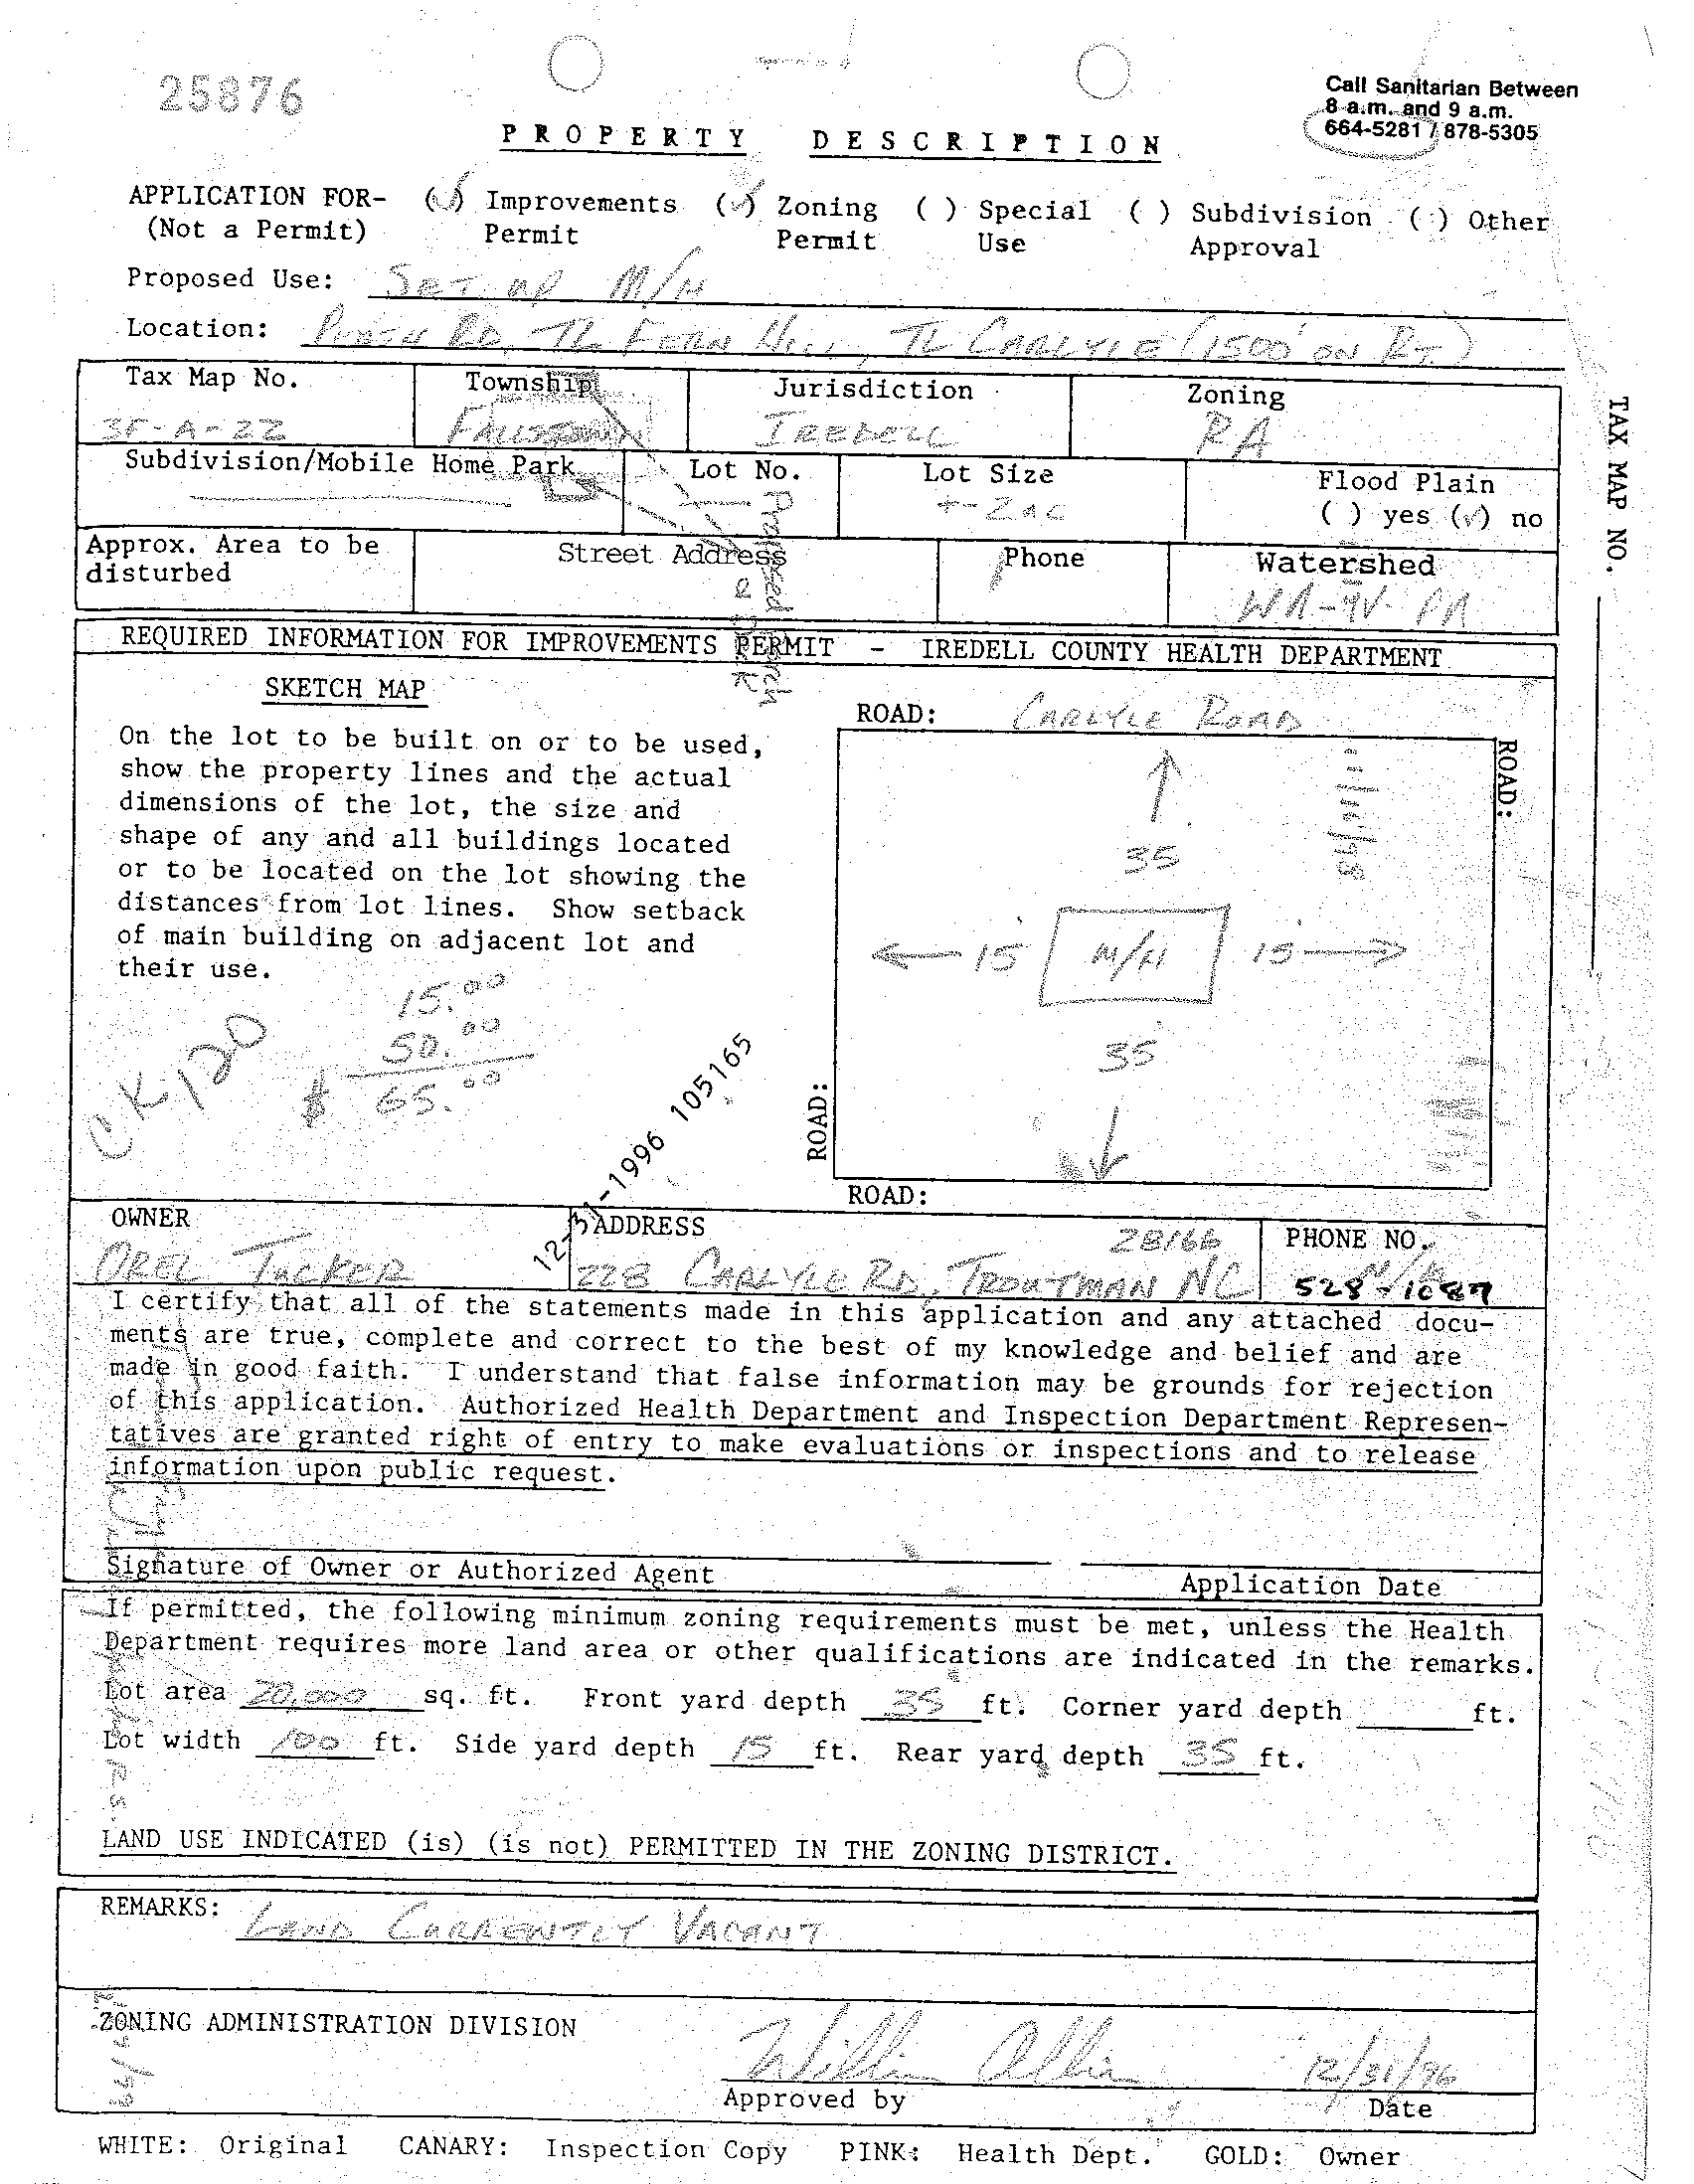 25876
Call Sanitarian Between
8 a.m. and 9 a.m.
664-5281 / 878-5305
PROPERTY DESCRIPTION
APPLICATION FOR- (✓) Improvements (✓) Zoning ( ) Special ( ) Subdivision ( ) Other
(Not a Permit) Permit Permit Use Approval
Proposed Use: SET UP M/H
Location: RD, TL FERN HILL, TL CARLYLE (1500' ON RT.)
Tax Map No. Township Jurisdiction Zoning
3F-A-22 FALLSTOWN IREDELL RA
Subdivision/Mobile Home Park Lot No. Lot Size Flood Plain
+-2AC ( ) yes (✓) no
Approx. Area to be disturbed Street Address Phone Watershed
TAX MAP NO.
REQUIRED INFORMATION FOR IMPROVEMENTS PERMIT - IREDELL COUNTY HEALTH DEPARTMENT
SKETCH MAP
ROAD: CARLYLE ROAD
On the lot to be built on or to be used,
show the property lines and the actual
dimensions of the lot, the size and
shape of any and all buildings located
or to be located on the lot showing the
distances from lot lines. Show setback
of main building on adjacent lot and
their use.
ROAD:
35
15 M/H 15
35
15.00
50.00
$ 65.00
CK 120
105165
ROAD:
ROAD:
OWNER ADDRESS 28166 PHONE NO.
OREL TUCKER 228 CARLYLE RD, TROUTMAN NC 528-1087
I certify that all of the statements made in this application and any attached docu-
ments are true, complete and correct to the best of my knowledge and belief and are
made in good faith. I understand that false information may be grounds for rejection
of this application. Authorized Health Department and Inspection Department Represen-
tatives are granted right of entry to make evaluations or inspections and to release
information upon public request.
Signature of Owner or Authorized Agent Application Date
If permitted, the following minimum zoning requirements must be met, unless the Health
Department requires more land area or other qualifications are indicated in the remarks.
Lot area 20,000 sq. ft. Front yard depth 35 ft. Corner yard depth ft.
Lot width 100 ft. Side yard depth 15 ft. Rear yard depth 35 ft.
LAND USE INDICATED (is) (is not) PERMITTED IN THE ZONING DISTRICT.
REMARKS: LAND CURRENTLY VACANT
ZONING ADMINISTRATION DIVISION
12/31/96
Approved by Date
WHITE: Original CANARY: Inspection Copy PINK: Health Dept. GOLD: Owner